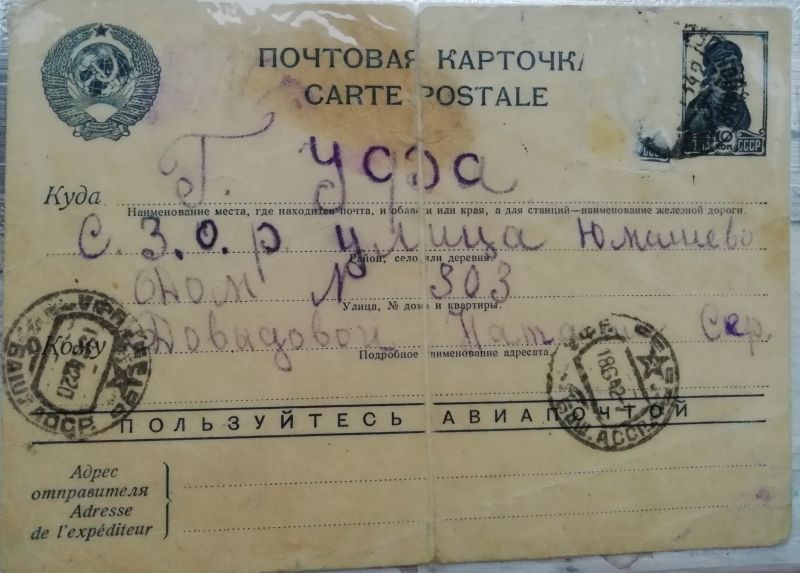 ПОЧТОВАЯ КАРТОЧКА
CARTE POSTALE
10 КОП СССР
Г. Уфа
Куда
Наименование места, где находится почта, и области или края, а для станций—наименование железной дороги.
С. З. О. Р улица Юмашево
Район, село или деревня.
Дом № 303
Улица, № дома и квартиры.
Кому Довыдовой Сер.
Подробное наименование адресата.
УФА
БАШ. АССР
УФА
18 6 42
БАШ. АССР
ПОЛЬЗУЙТЕСЬ АВИАПОЧТОЙ
Адрес
отправителя
Adresse
de l'expéditeur